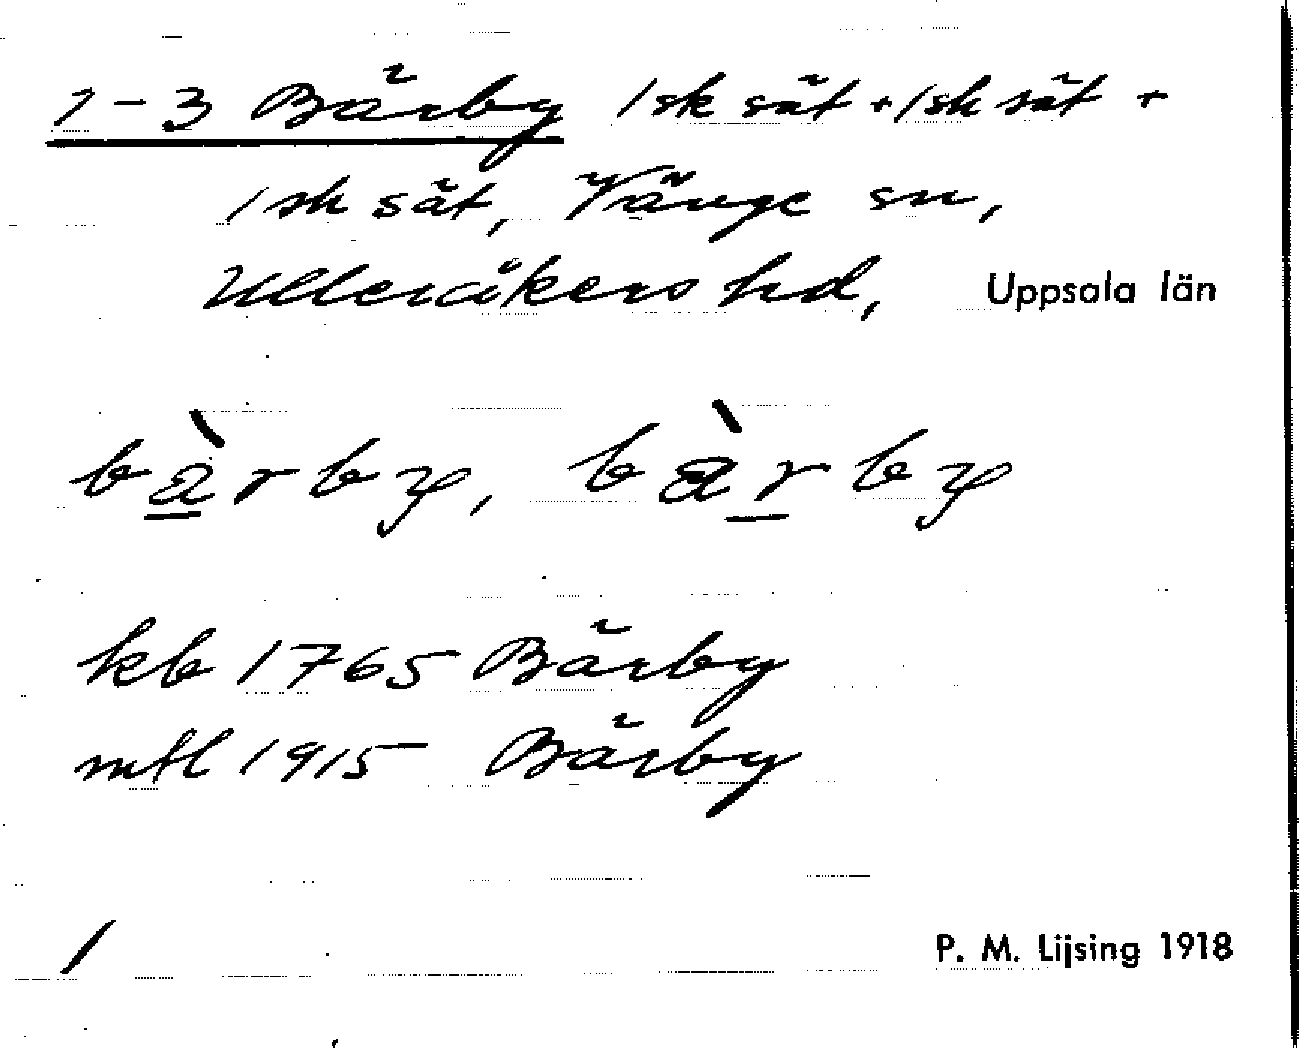 1-3 Bärby 1 sk sät + 1 sk sät +
1 sk sät, Vänge sn,
Ulleråkers hd, Uppsala län
bàrby, bàrby
kb 1765 Bärby
mtl 1915 Bärby
/ P. M. Lijsing 1918